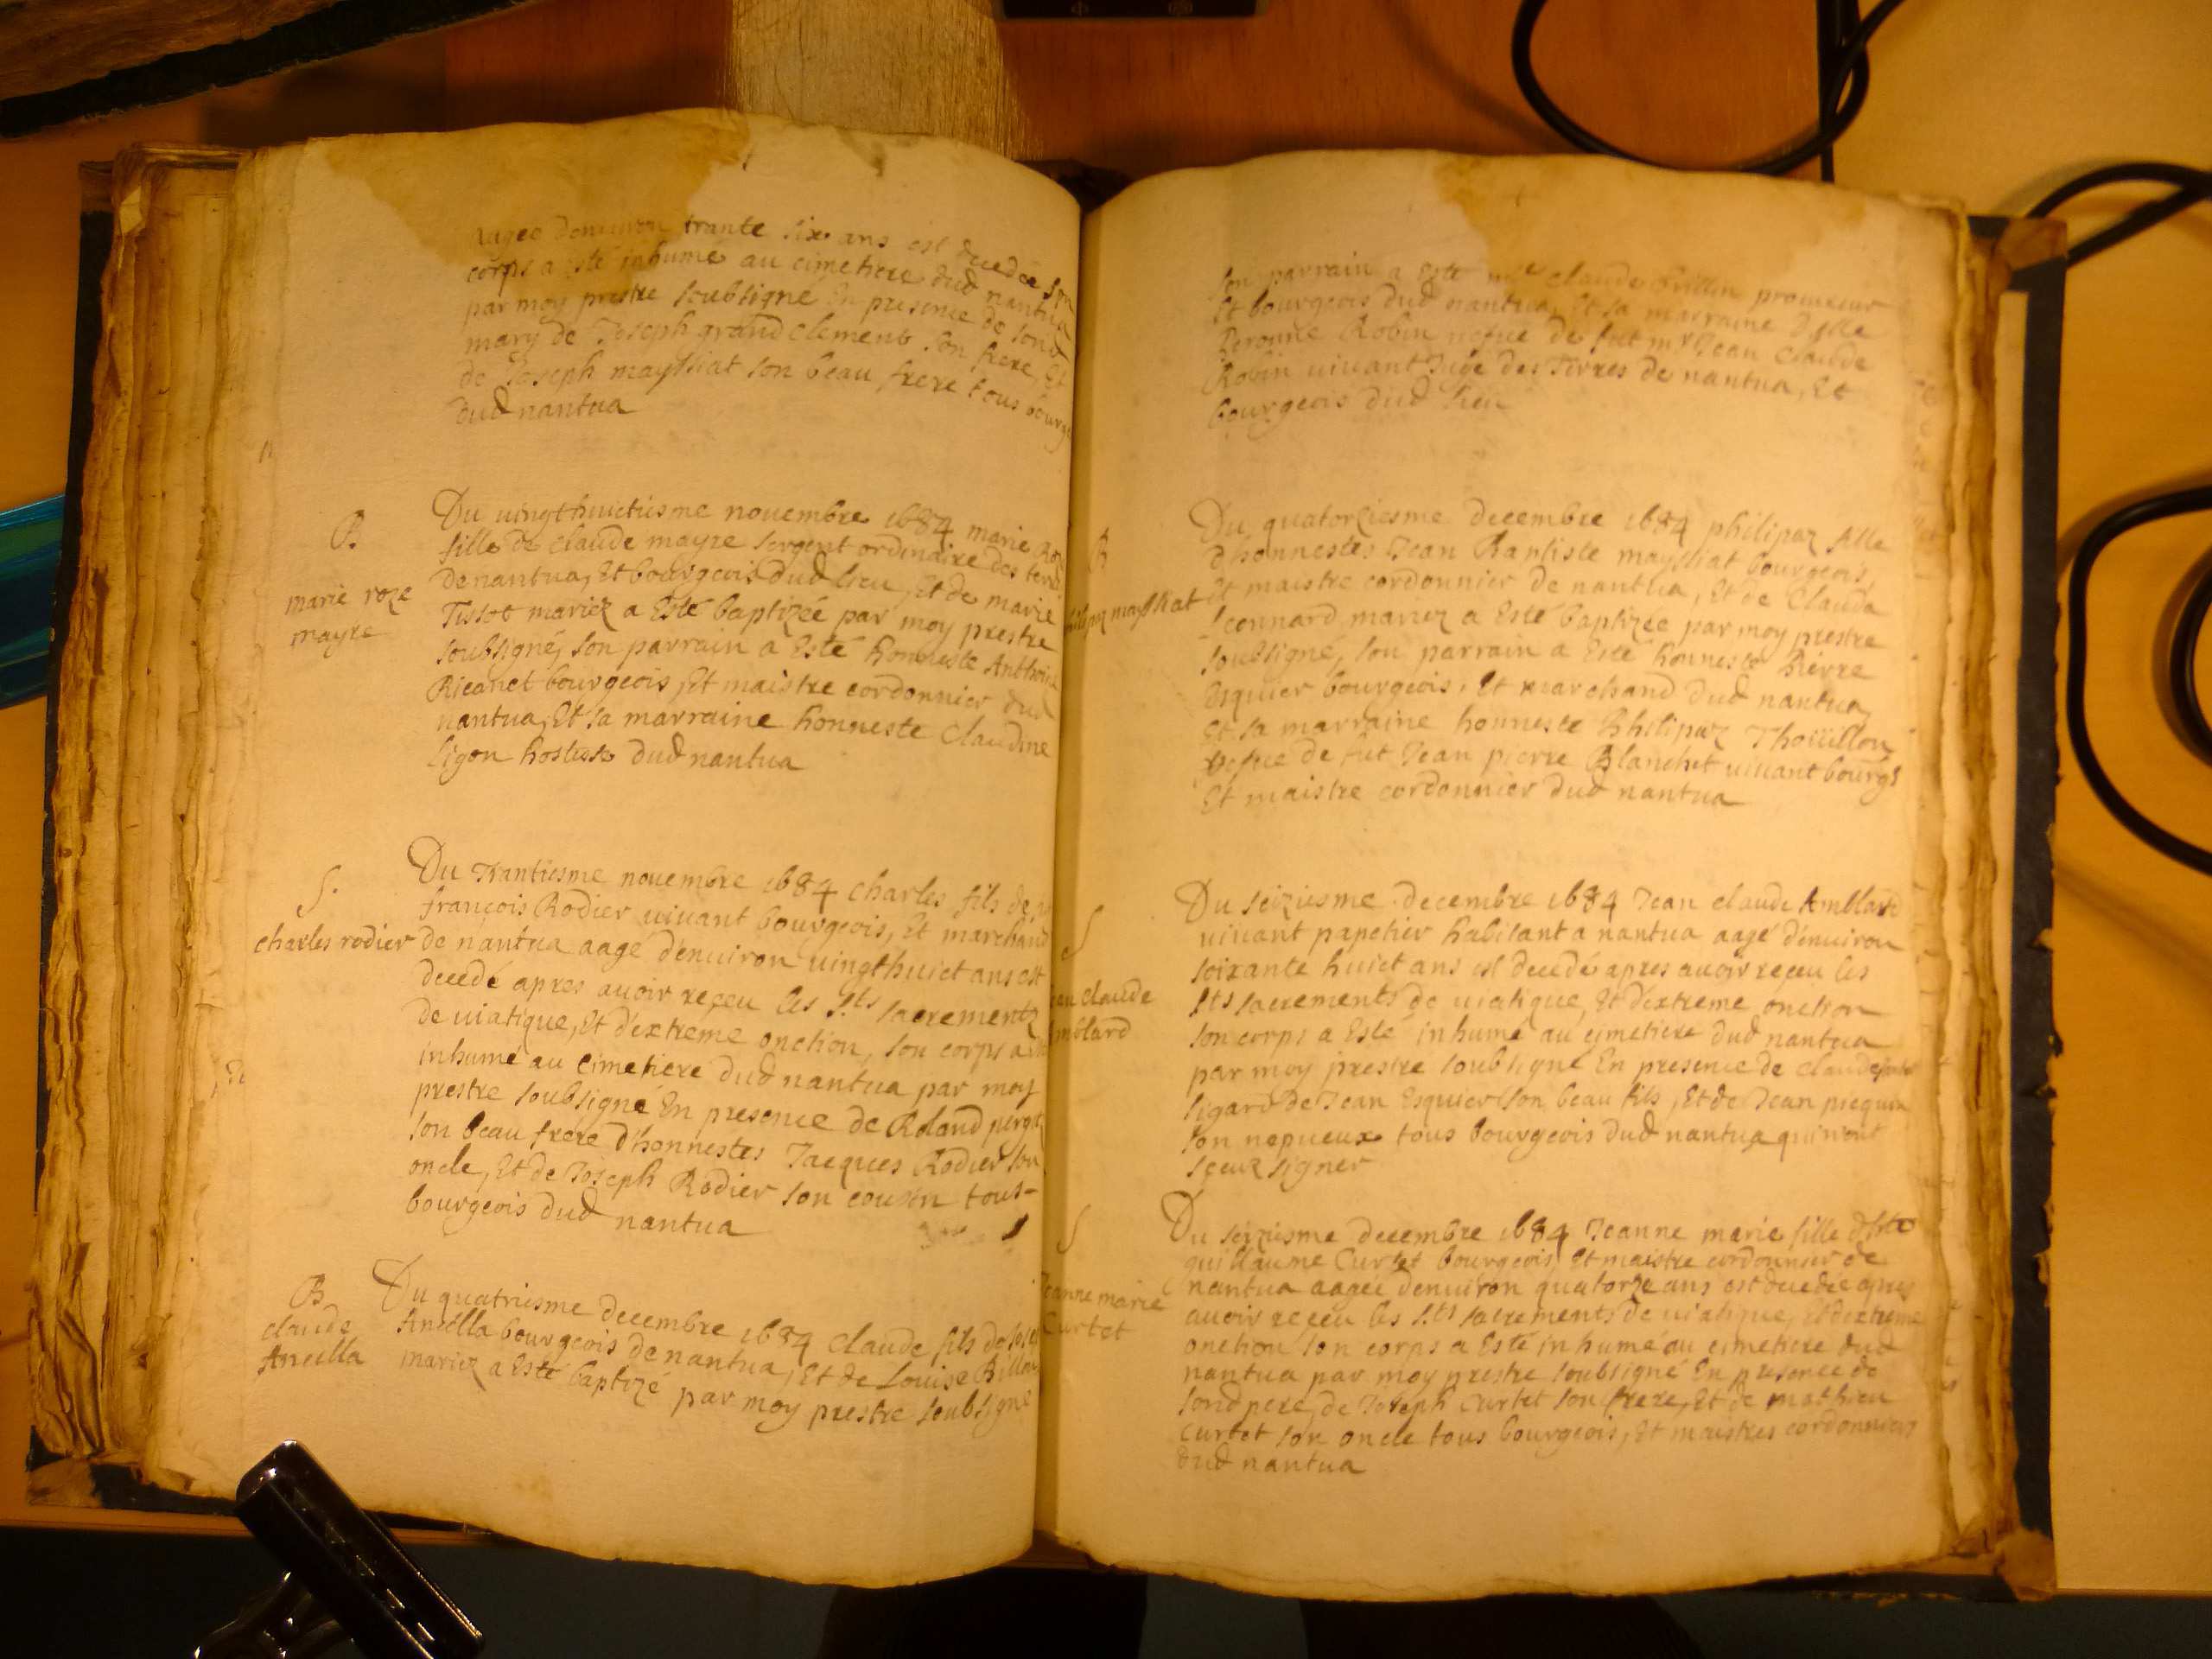 aagée denuiron trante six ans est decedée son
corps a esté inhumé au cimetiere dud nantua
par moy prestre soubsigné En presence de sond
mary de Joseph grand clement son frere, Et
de Joseph mayssiat son beau frere tous bourg
dud nantua
B.
marie roze
mayre
Du uingthuictiesme nouembre 1684 marie roz
fille de claude mayre sergent ordinaire des terr
de nantua, Et bourgeois dud lieu, Et de marie
Tissot mariez a Esté baptizée par moy prestre
soubsigné, son parrain a Esté honneste Anthoine
Ricanet bourgeois, Et maistre cordonnier dud
nantua, Et sa marraine honneste Claudine
ligon hostesse dud nantua
S.
charles rodier
Du Trantiesme nouembre 1684 charles fils de
françois Rodier uiuant bourgeois, Et marchand
de nantua aagé d'enuiron uingthuict ans est
decedé apres auoir reçeu les S.ts sacrementz
de uiatique, Et d'extreme onction, son corps a
inhumé au cimetiere dud nantua par moy
prestre soubsigné En presence de Roland
son beau frere d'honnestes Jacques Rodier son
oncle, Et de Joseph Rodier son cousin tous
bourgeois dud nantua
B
claude
Ancella
Du quatriesme decembre 1684 claude fils de
Ancella bourgeois de nantua, Et de Louise
mariez a Esté baptizé par moy prestre soubsigné
son parrain a Esté claude procureur
Et bourgeois dud nantua, Et sa marraine
Peronne Robin uefue de fut mr Jean Claude
Robin uiuant Juge des Terres de nantua, Et
bourgeois dud lieu
B
mayssiat
Du quatorziesme decembre 1684 philipaz fille
d'honnestes Jean Baptiste mayssiat bourgeois,
Et maistre cordonnier de nantua, Et de Clauda
Leonnard mariez a Esté baptizée par moy prestre
soubsigné, son parrain a Esté honneste Pierre
Esquier bourgeois, Et marchand dud nantua,
Et sa marraine honneste Philipaz Thouillon
uefue de fut Jean pierre Blanchet uiuant bourgs
Et maistre cordonnier dud nantua
S
Jean claude
Amblard
Du seiziesme decembre 1684 Jean claude Amblard
uiuant papetier habitant a nantua aagé d'enuiron
soixante huict ans est decedé apres auoir reçeu les
Sts sacrements de uiatique, Et d'extreme onction
son corps a Esté inhumé au cimetiere dud nantua
par moy prestre soubsigné En presence de claude
ligard de Jean Esquier son beau fils, Et de Jean
son nepueux tous bourgeois dud nantua qui n'ont
sçeuz signer
S
Jeanne marie
Curtet
Du seiziesme decembre 1684 Jeanne marie fille
guillaume Curtet bourgeois, Et maistre cordonnier de
nantua aagée denuiron quatorze ans est decedée apres
auoir reçeu les S.ts sacrements de uiatique, Et dextreme
onction son corps a Esté inhumé au cimetiere dud
nantua par moy prestre soubsigné En presence de
sond pere, de Joseph Curtet son frere, Et de mathieu
curtet son oncle tous bourgeois, Et maistres cordonniers
dud nantua